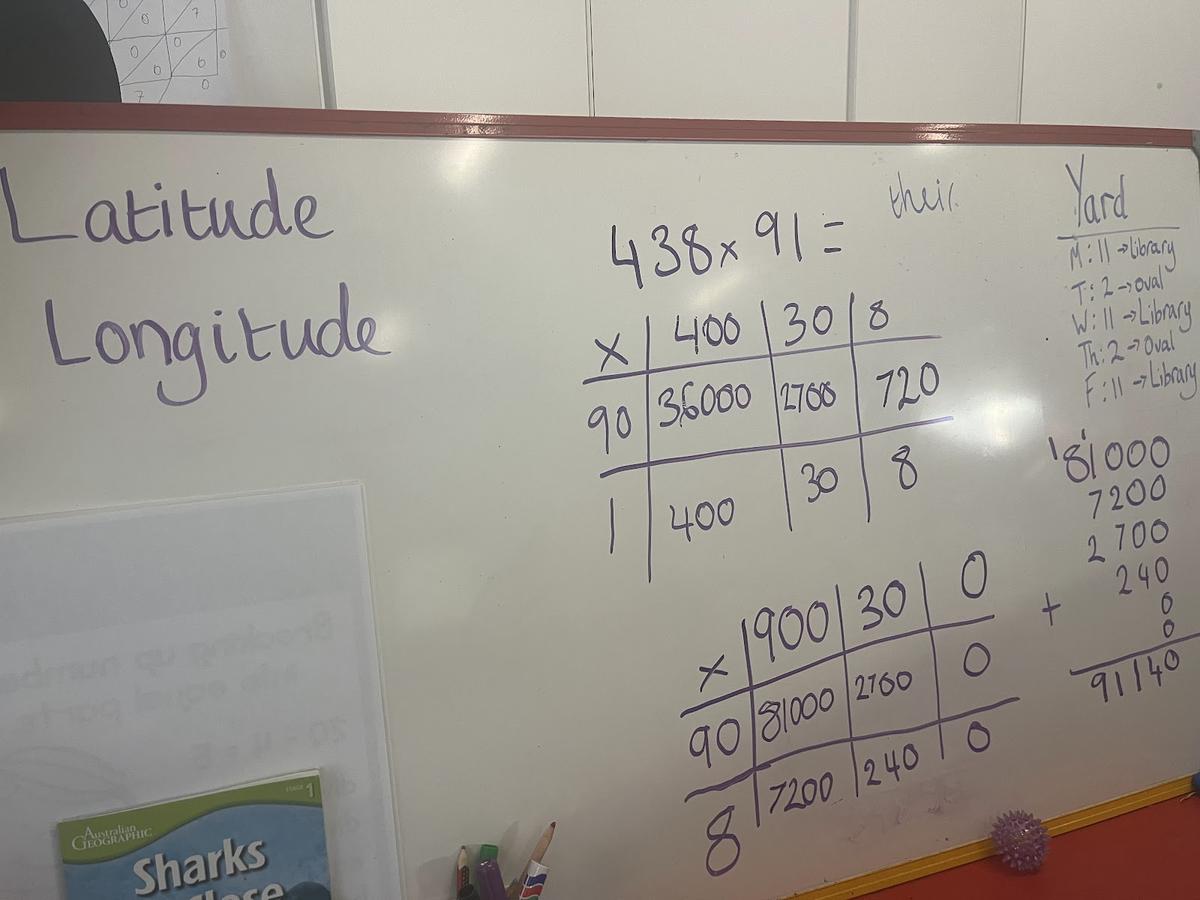 Latitude
Longitude
438 x 91 =
their
x 400 30 8
90 36000 2700 720
1 400 30 8
x 900 30 0
90 81000 2700 0
8 7200 240 0
Yard
M: 11 → Library
T: 2 → Oval
W: 11 → Library
Th: 2 → Oval
F: 11 → Library
81000
7200
2700
240
0
+ 0
91140
Australian
GEOGRAPHIC
STAGE 1
Sharks